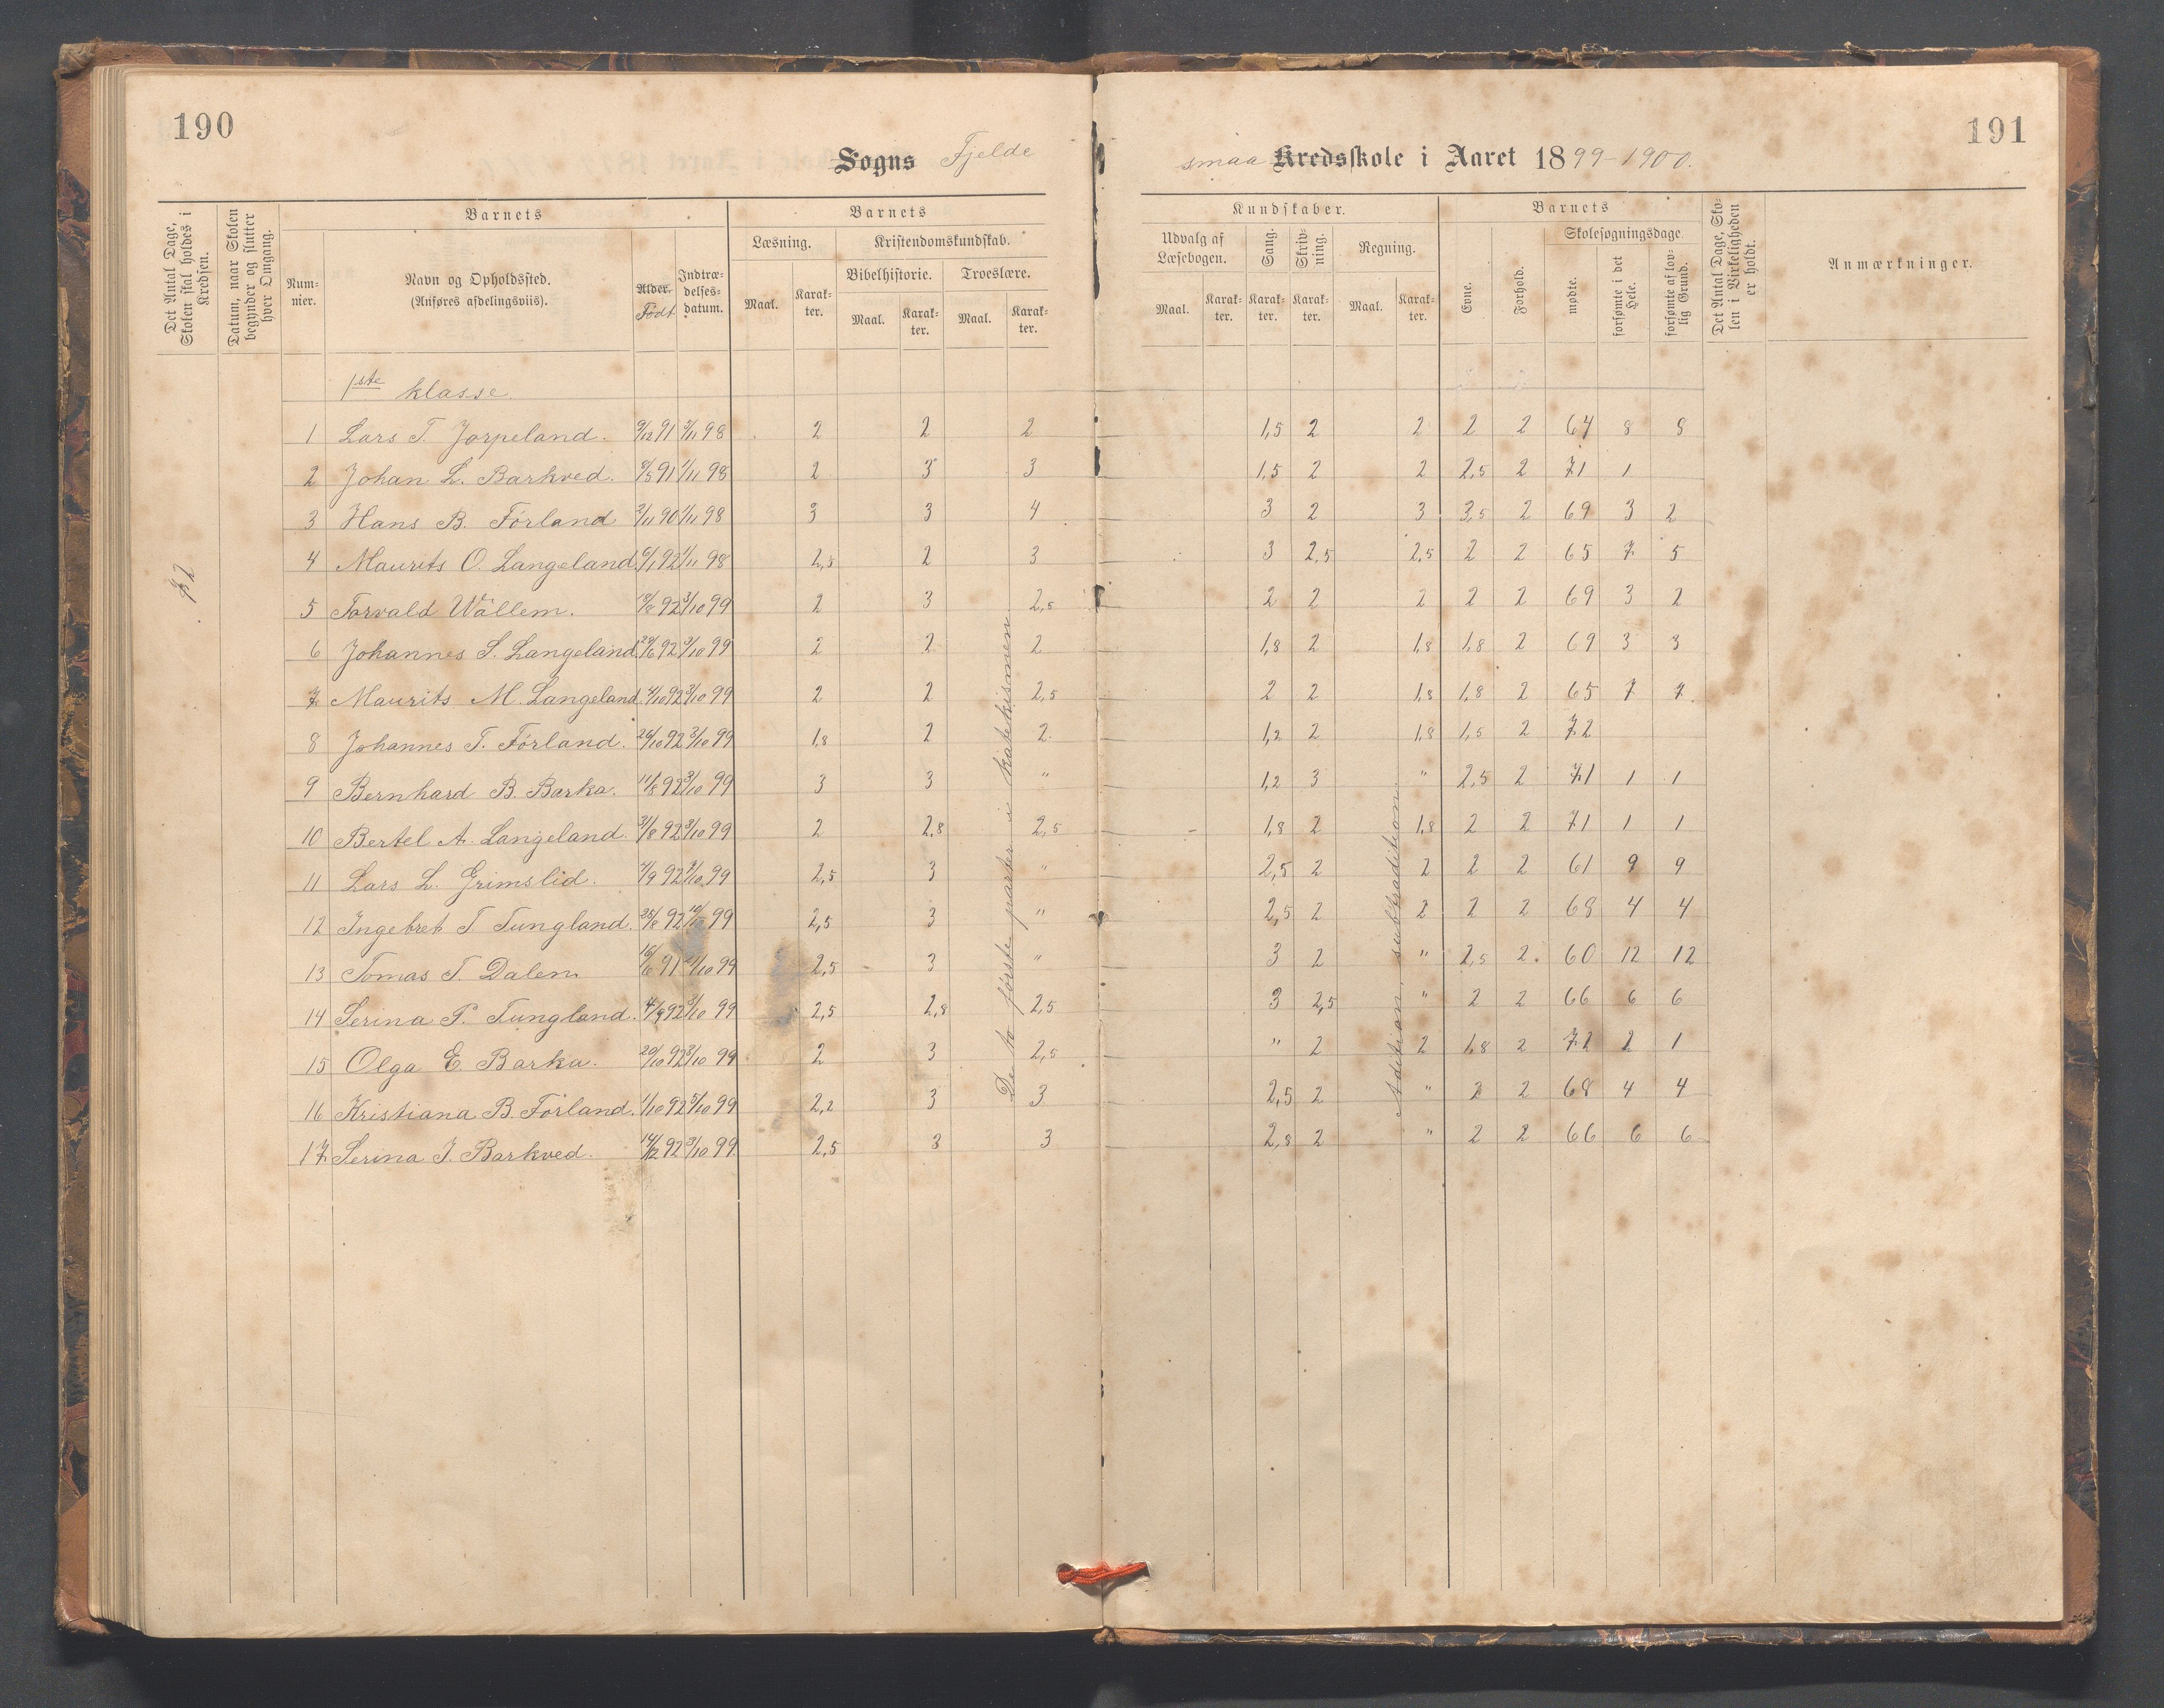 190
Sogns Fjelde
Det Antal Dage, Skolen skal holdes i Kredsen.
Datum, naar Skolen begynder og slutter hver Omgang.
Barnets
Num-
mer.
Navn og Opholdssted.
(Anføres afdelingsviis).
Alder.
Født
Indtræ-
delses-
datum.
Barnets
Læsning.
Kristendomskundskab.
Bibelhistorie.
Troeslære.
Maal. Karak-
ter. Maal. Karak-
ter. Maal. Karak-
ter.
72
1ste klasse.
1 Lars T. Jorpeland. 9/12 91 3/11 98 2 2 2
2 Johan L. Barkved. 8/5 91 1/11 98 2 3 3
3 Hans B. Førland 2/11 90 1/11 98 3 3 4
4 Maurits O. Langeland 6/1 92 1/11 98 2,5 2 3
5 Torvald Wållem. 18/8 92 3/10 99 2 3 2,5
6 Johannes S. Langeland 29/6 92 3/10 99 2 2 2
7 Maurits M. Langeland 4/10 92 3/10 99 2 2 2,5
8 Johannes T. Førland. 26/10 92 3/10 99 1,8 2 2
9 Bernhard B. Barka. 11/8 92 3/10 99 3 3 "
10 Bertel A. Langeland. 31/8 92 3/10 99 2 2,8 2,5
11 Lars L. Grimslid. 7/9 92 9/10 99 2,5 3 "
12 Ingebret T Tungland. 25/8 92 10/10 99 2,5 3 "
13 Tomas T. Dalen 16/6 91 99 2,5 3 "
14 Serina P. Tungland. 4/9 92 3/10 99 2,5 2,8 2,5
15 Olga E. Barka. 20/10 92 3/10 99 2 3 2,5
16 Kristiana B. Førland. 1/10 92 5/10 99 2,2 3 3
17 Serina J. Barkved. 14/12 92 3/10 99 2,5 3 3
De to første parter i katekismen
191
smaa Kredsskole i Aaret 1899-1900.
Kundskaber.
Udvalg af
Læsebogen.
Sang.
Skriv-
ning.
Regning.
Maal. Karak-
ter. Karak-
ter. Karak-
ter. Maal. Karak-
ter.
Barnets
Evne.
Forhold.
Skolesøgningsdage.
mødte.
forsømte i det Hele.
forsømte af lov-
lig Grund.
Det Antal Dage, Sko-
len i Virkeligheden
er holdt.
Anmærkninger.
1,5 2 2 2 2 64 8 8
1,5 2 2 2,5 2 71 1
3 2 3 3,5 2 69 3 2
3 2,5 2,5 2 2 65 7 5
2 2 2 2 2 69 3 2
1,8 2 1,8 1,8 2 69 3 3
2 2 1,8 1,8 2 65 7 7
1,2 2 1,8 1,5 2 72
1,2 3 " 2,5 2 71 1 1
1,8 2 1,8 2 2 71 1 1
2,5 2 2 2 2 61 9 9
2,5 2 2 2 2 68 4 4
3 2 " 2,5 2 60 12 12
3 2,5 " 2 2 66 6 6
" 2 2 1,8 2 72 2 1
2,5 2 " 2 2 68 4 4
2,8 2 " 2 2 66 6 6